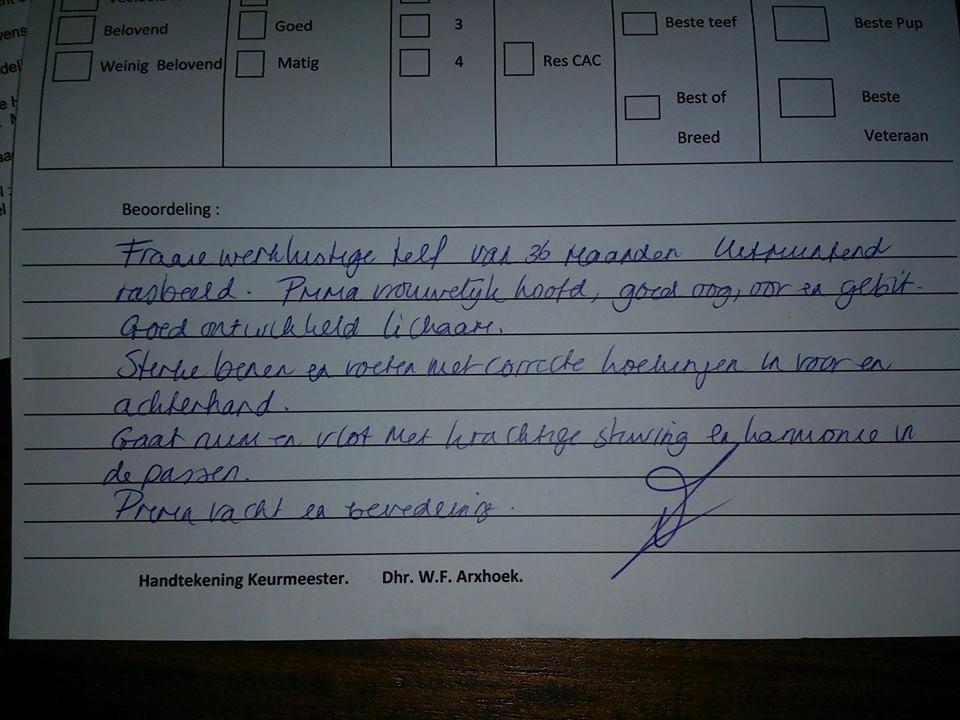 Belovend Goed 3 Beste teef Beste Pup
Weinig Belovend Matig 4 Res CAC
Best of Beste
Breed Veteraan
Beoordeling :
Fraaie werklustige teef van 36 maanden Uitmuntend
rasbeeld. Prima vrouwelijk hoofd, goed oog, oor en gebit.
Goed ontwikkeld lichaam.
Sterke benen en voeten met correcte hoekingen in voor en
achterhand.
Gaat ruim en vlot met krachtige stuwing en harmonie in
de passen.
Prima vacht en bevedering.
Handtekening Keurmeester. Dhr. W.F. Arxhoek.